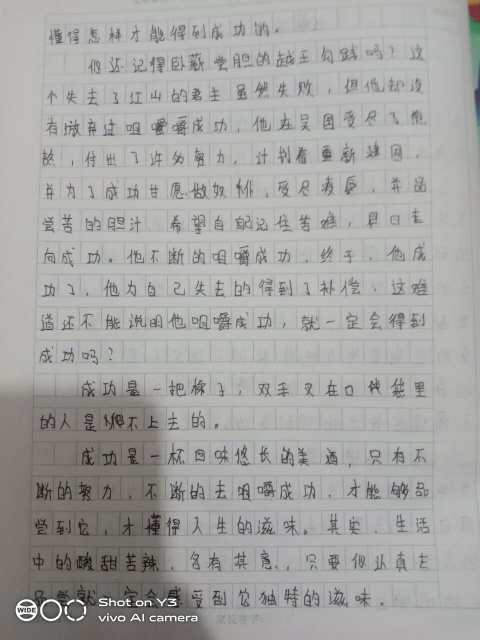 懂得怎样才能得到成功的。
你还记得卧薪尝胆的越王勾践吗？这
个失去了江山的君主虽然失败，但他却没
有放弃过咀嚼嚼成功，他在吴国受尽了
，付出了许多努力，计划着重新建国，
并为了成功甘愿做奴仆，受尽，并品
尝苦的胆汁，希望自己记住苦难，早日走
向成功。他不断的咀嚼成功，终于，他成
功了，他为自己失去的得到了补偿，这难
道还不能说明他咀嚼成功，就一定会得到
成功吗？
成功是一把梯子，双手叉在口袋里
的人是爬不上去的。
成功是一杯回味悠长的美酒，只有不
断的努力，不断的去咀嚼成功，才能够品
尝到它，才懂得人生的滋味。其实，生活
中的酸甜苦辣，各有其意，只要你认真去
品尝就一定会感受到它独特的滋味。
WIDE
Shot on Y3
vivo AI camera